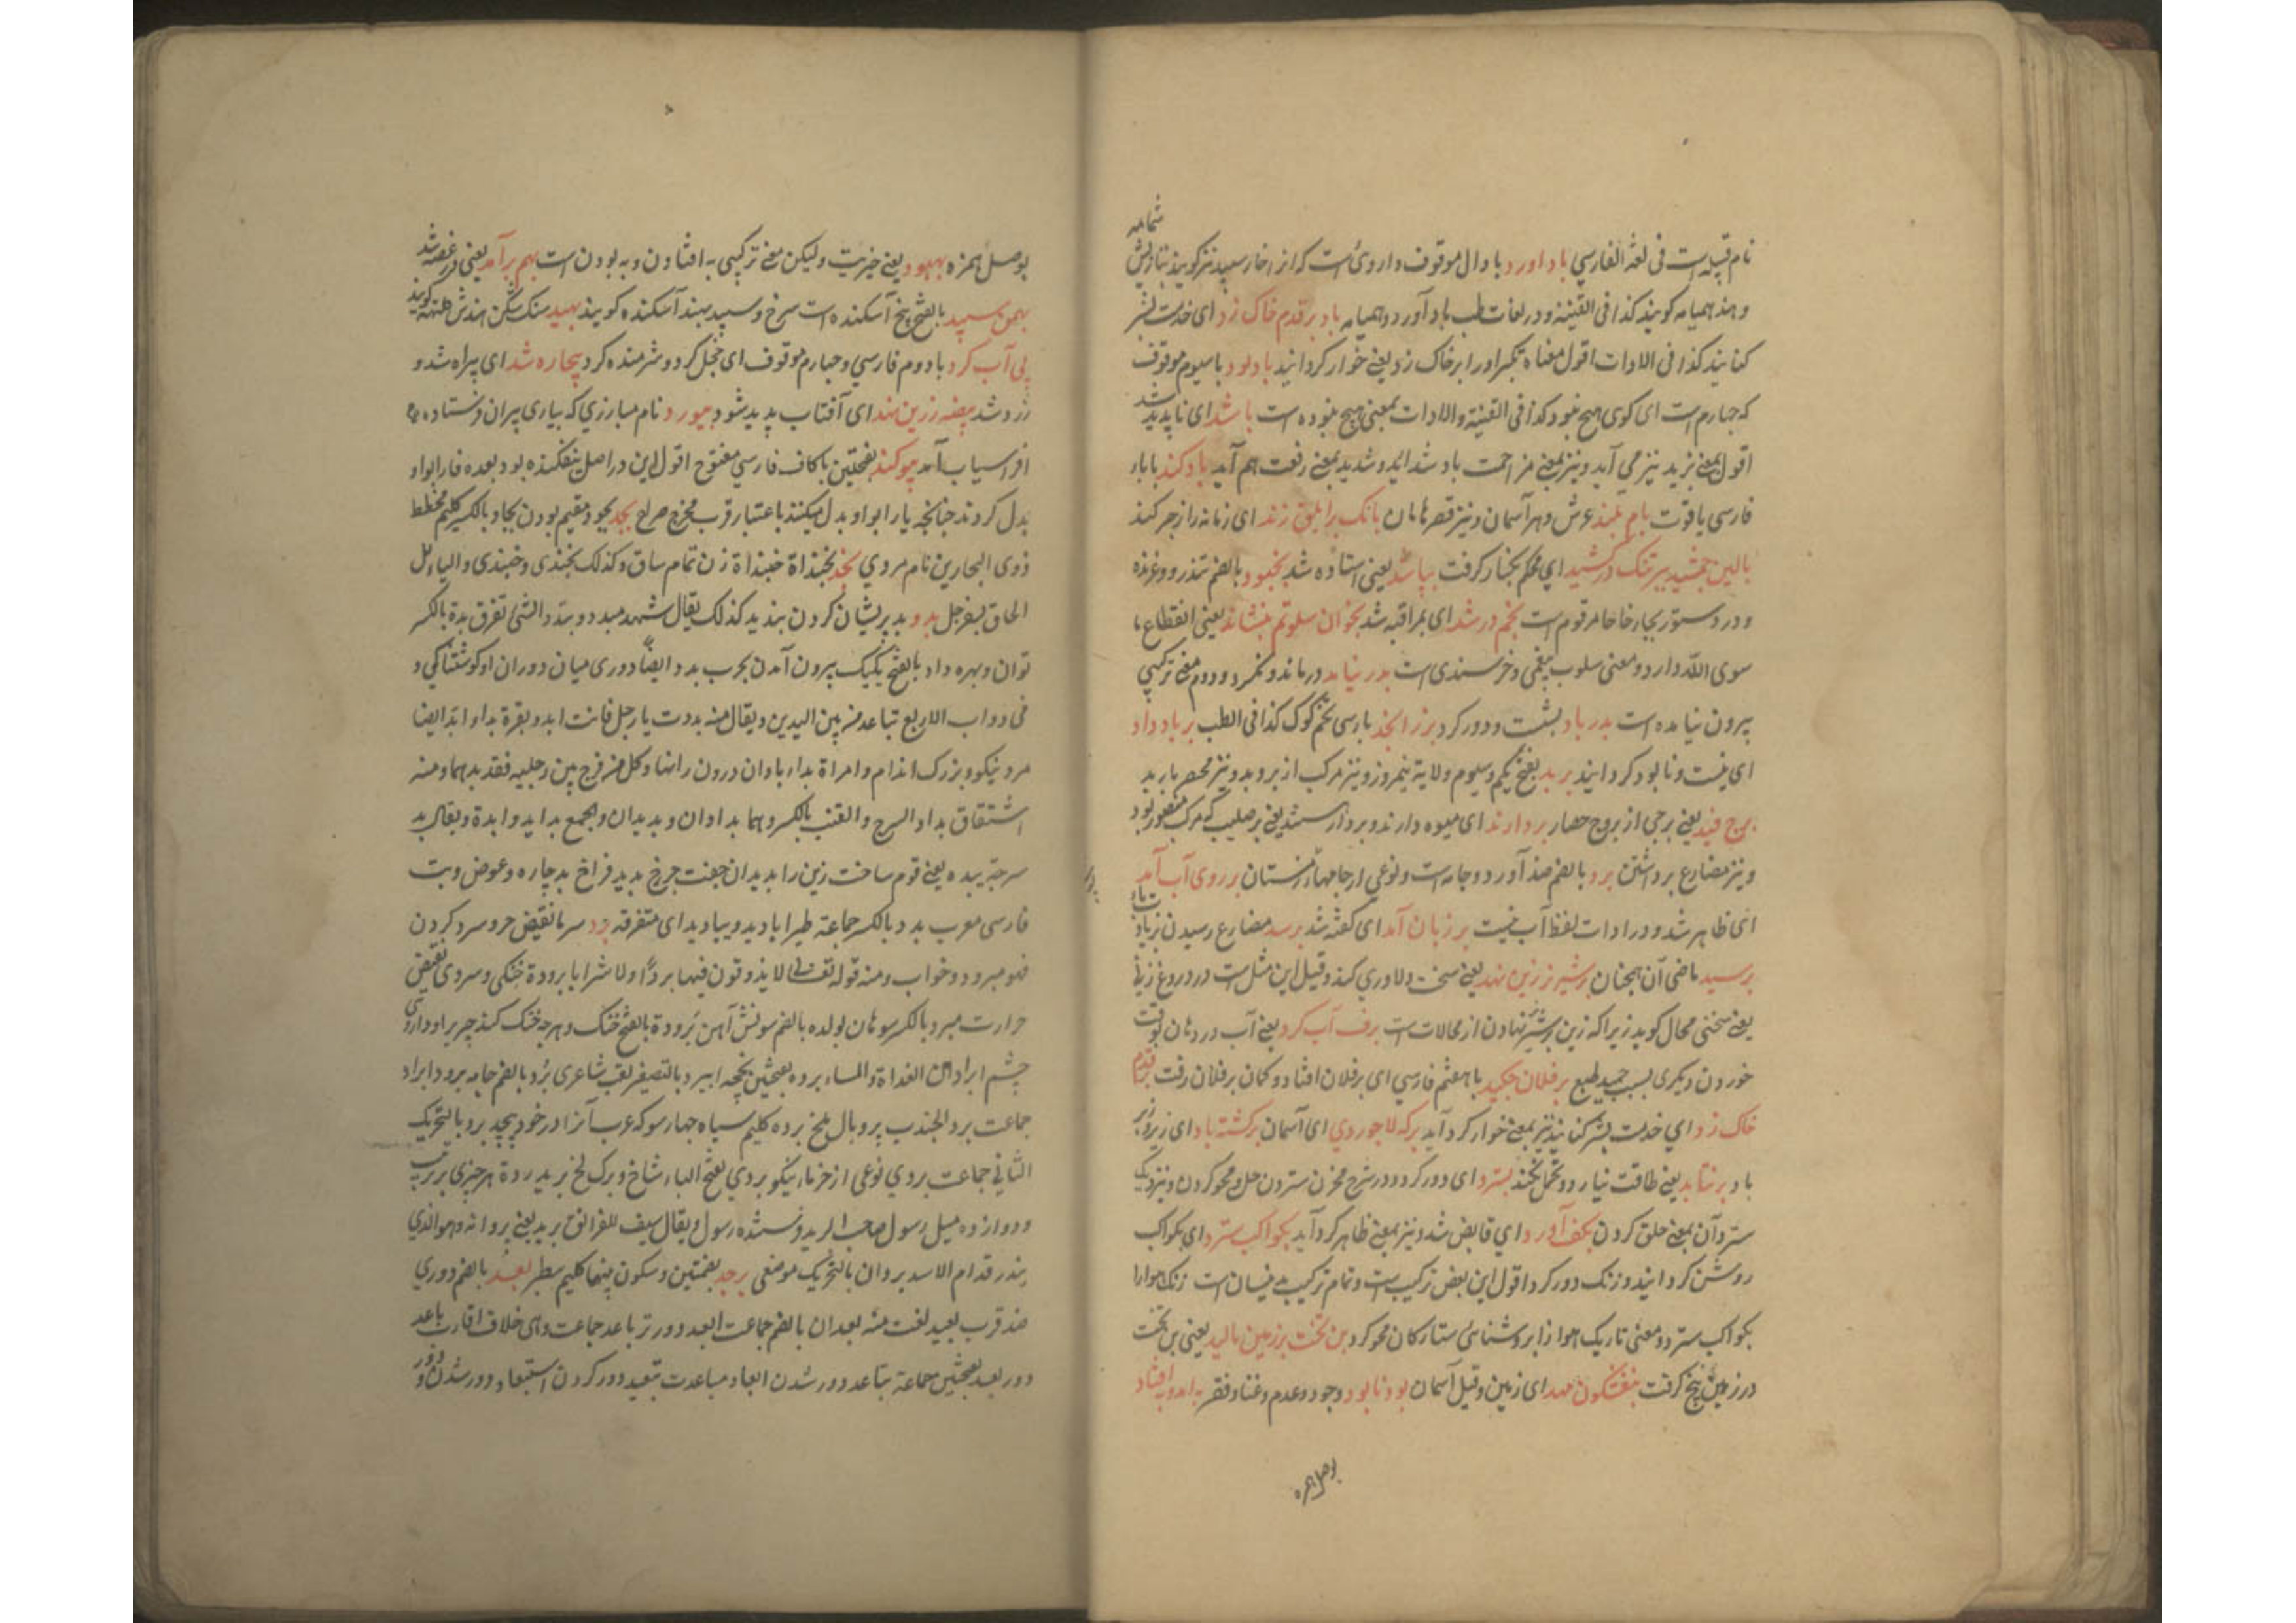 شامه
نام قبیله است فی لغة الفارسی باد اورد با وال موقوف داروئی است که از اخار سپید نیز کویند بتازیش
و هند همیامه کویند کذا فی القنیة و در لغات طب باد آورد و همیامه باد بر قدم خاک زد ای خدمت بشر
کنایند کذا فی الادات اقول معناه تکبر اورا بر خاک زد یعنے خوار کردانید باد بود با سیوم موقوف
که چهارم است ای کوی هیچ نبود کذا فی القنیة والادات بمعنی هیچ نبوده است با شد ای ناپدید شد
اقول بمعنے نزید نیز می آید و نیز بمعنے مزاحمت باد شد اید و شدید بمعنے رفعت هم آید باد کند بابا
فارسی یاقوت بام بلند عرش و هر آسمان و نیز قصر هامان بانک بر ابلق زند ای زمانه را زجر کند
بالین جمشید بر تنک در کشید ای محکم بکنار کرفت بپا شد یعنی استاده شد بخبود بالضم تندر و غرنده
و در دستور بجار خا خا مرقوم است بخم در شد ای بمراقبه شد بخوان سلوتم بنشاند یعنی انقطاع ما
سوی الله دارد و معنی سلوب بیغمی و خرسندی است بدر نیامد درماند و نمرد و دوم معنے ترکیبی
بیرون نیامده است بدر باد بشت و دور کرد بزر الخد بارسی تخم کوک کذا فی الطب بر باد داد
ای نیست و نابود کردانید بربد بفتح یکم و سیوم ولایة نیمروز و نیز مرکب از بر و بد و نیز مختصر باربد
برج فید یعنے برجی از بروج حصار بردارند ای میوه دارند و بردار ستند یعنے بر صلیب که مرک منصور بود
و نیز مضارع برداشتن برد بالضم ضد آورد و جامه است و نوعی از جامهاء زمستان بر روی آب آمد
ای ظاهر شد و در ادات لفظ آب نیست بر زبان آمد ای کفته شد برسد مضارع رسیدن
برسید ماضی آن همچنان بر شیر زرین نهد یعنی سخت دلاوری کند و قیل این مثل است در دروغ زنی
یعنے سخنی محال کوید زیرا که زین بر شیر نهادن از محالات است برف آب کرد یعنے آب در دهان بوقت
خوردن دیکری بسبب طبع بر فلان چکید با هفتم فارسی ای بر فلان افتاد و کمان بر فلان رفت بر قدم
خاک زد ای خدمت بشر کنایند نیز بمعنے خوار کرد آید برکه لاجوردی ای آسمان برکشته باد ای زیر و زبر
باد برنتابد یعنے طاقت نیارد و تحمل نکند بسترد ای دور کرد و در شرح مخزن ستردن حل و محو کردن و نزدیک
ستردن بمعنے حلق کردن بکف آورد ای قابض شد و نیز بمعنے ظاهر کرد آید بکواکب سترد ای بکواکب
روشن کردانید و زنک دور کرد اقول این بعض ترکیبست و تمام ترکیب چنین است زنک هوا را
بکواکب سترد و معنی تاریک هوا را بروشنائی ستارکان محو کرد بن تخت بر زمین مالید یعنی بن تخت
در زمین بیخ کرفت بنفشکون مهد ای زمین و قیل آسمان بود نابود وجود و عدم و غنا و فقر به اندو به افتاد
بوصل همزه
بوصل همزه بهبود یعنے خیریت ولیکن معنے ترکیبی به افتادن و به بودن است بهم برآمد یعنی در غصه شد
بهمن سپید بالفتح بیخ آسکنده است سرخ و سپید بهند آسکنده کویند بهید سنک شکن کویند
بی آب کرد با دوم فارسی و چهارم موقوف ای خجل کرد و شرمنده کرد بیچاره شد ای بیراه شد و
زرد شد بیضه زرین نهد ای آفتاب پدید شود بیورد نام مبارزی که بیاری پیران فرستاده
افراسیاب آمد بیوکند بفتحتین با کاف فارسی مفتوح اقول این در اصل بیفکنده بود بعده فا را بواو
بدل کردند چنانچه یا را بواو بدل میکنند باعتبار قرب مخرج صراح بجد بجود مقیم بودن بجا و بالکسر کلیم مخطط
ذوی البجادین نام مردی بخند بخنداة خبنداة زن تمام ساق و کذلک بخندی و خبندی والیاء لل
الحاق بسفرجل بدد بد پریشان کردن بندید کذلک یقال شمهد مبدد و بتدد الشی تفرق بدة بالکسر
توان و بهره داد بالفتح یکیک بیرون آمدن بحرب بدد ایضاً دوری میان دو ران او کوشتناکی و
فی دواب الاربع تباعد منه بین الیدین و یقال منه بددت یا رجل فانت ابد و بقرة بداء ابد ایضا
مرد نیکو و بزرک اندام و امراة بداء بادان درون رانها و کل من فرج بین رجلیه فقد بدهما و منه
اشتقاق بداد السرج و القتب بالکسر و هما بدادان و بدیدان والجمع بداید وابدة و یقال بد
سرجه یبده یعنے قوم ساخت زین را بدیدان جفت خرج بدید فراخ بد چاره و عوض و بت
فارسی معرب بدد بالکسر جماعة طیر ابادید و یبادید ای متفرقه برد سرما نقیض حر و سرد کردن
فهو مبرود و خواب و منه قوله تعالی لا یذوقون فیها بردا ولا شرابا برودة خنکی و سردی نقیض
حرارت مبرد بالکسر سوهان بولده بالضم سونش آهن برودة بالفتح خنک و هرچه خنک کند چیزی را و داروی
چشم ابردان الغداة والمساء برده بفتحتین تخمه ابیرد بالتصغیر لقب شاعری برد بالضم جامه برود ابراد
جماعت برد الجندب پر و بال ملخ برده کلیم سیاه چهارسو که عرب آنرا در خود پیچد برد بالتحریک
الثانی جماعت بردی نوعی از خرماء نیکو بردی بفتح الباء شاخ و برک لخ برید رده هر چیزی بر ترتیب
و دوازده میل رسول صاحب البرید فرستنده رسول و یقال سیف للفرانق برید یعنے پروانه و هو الذی
ینذر قدام الاسد بردان بالتحریک موضعی برجد بضمتین و سکون بینهما کلیم سطبر بعد بالضم دوری
ضد قرب بعید لغت منه بعدان بالضم جماعت ابعد دورتر باعد جماعت و هی خلاف اقارب باعد
دور بعد بفتحتین جماعة تباعد دور شدن ابعاد مباعدت تبعید دور کردن استبعاد دور شدن و دور